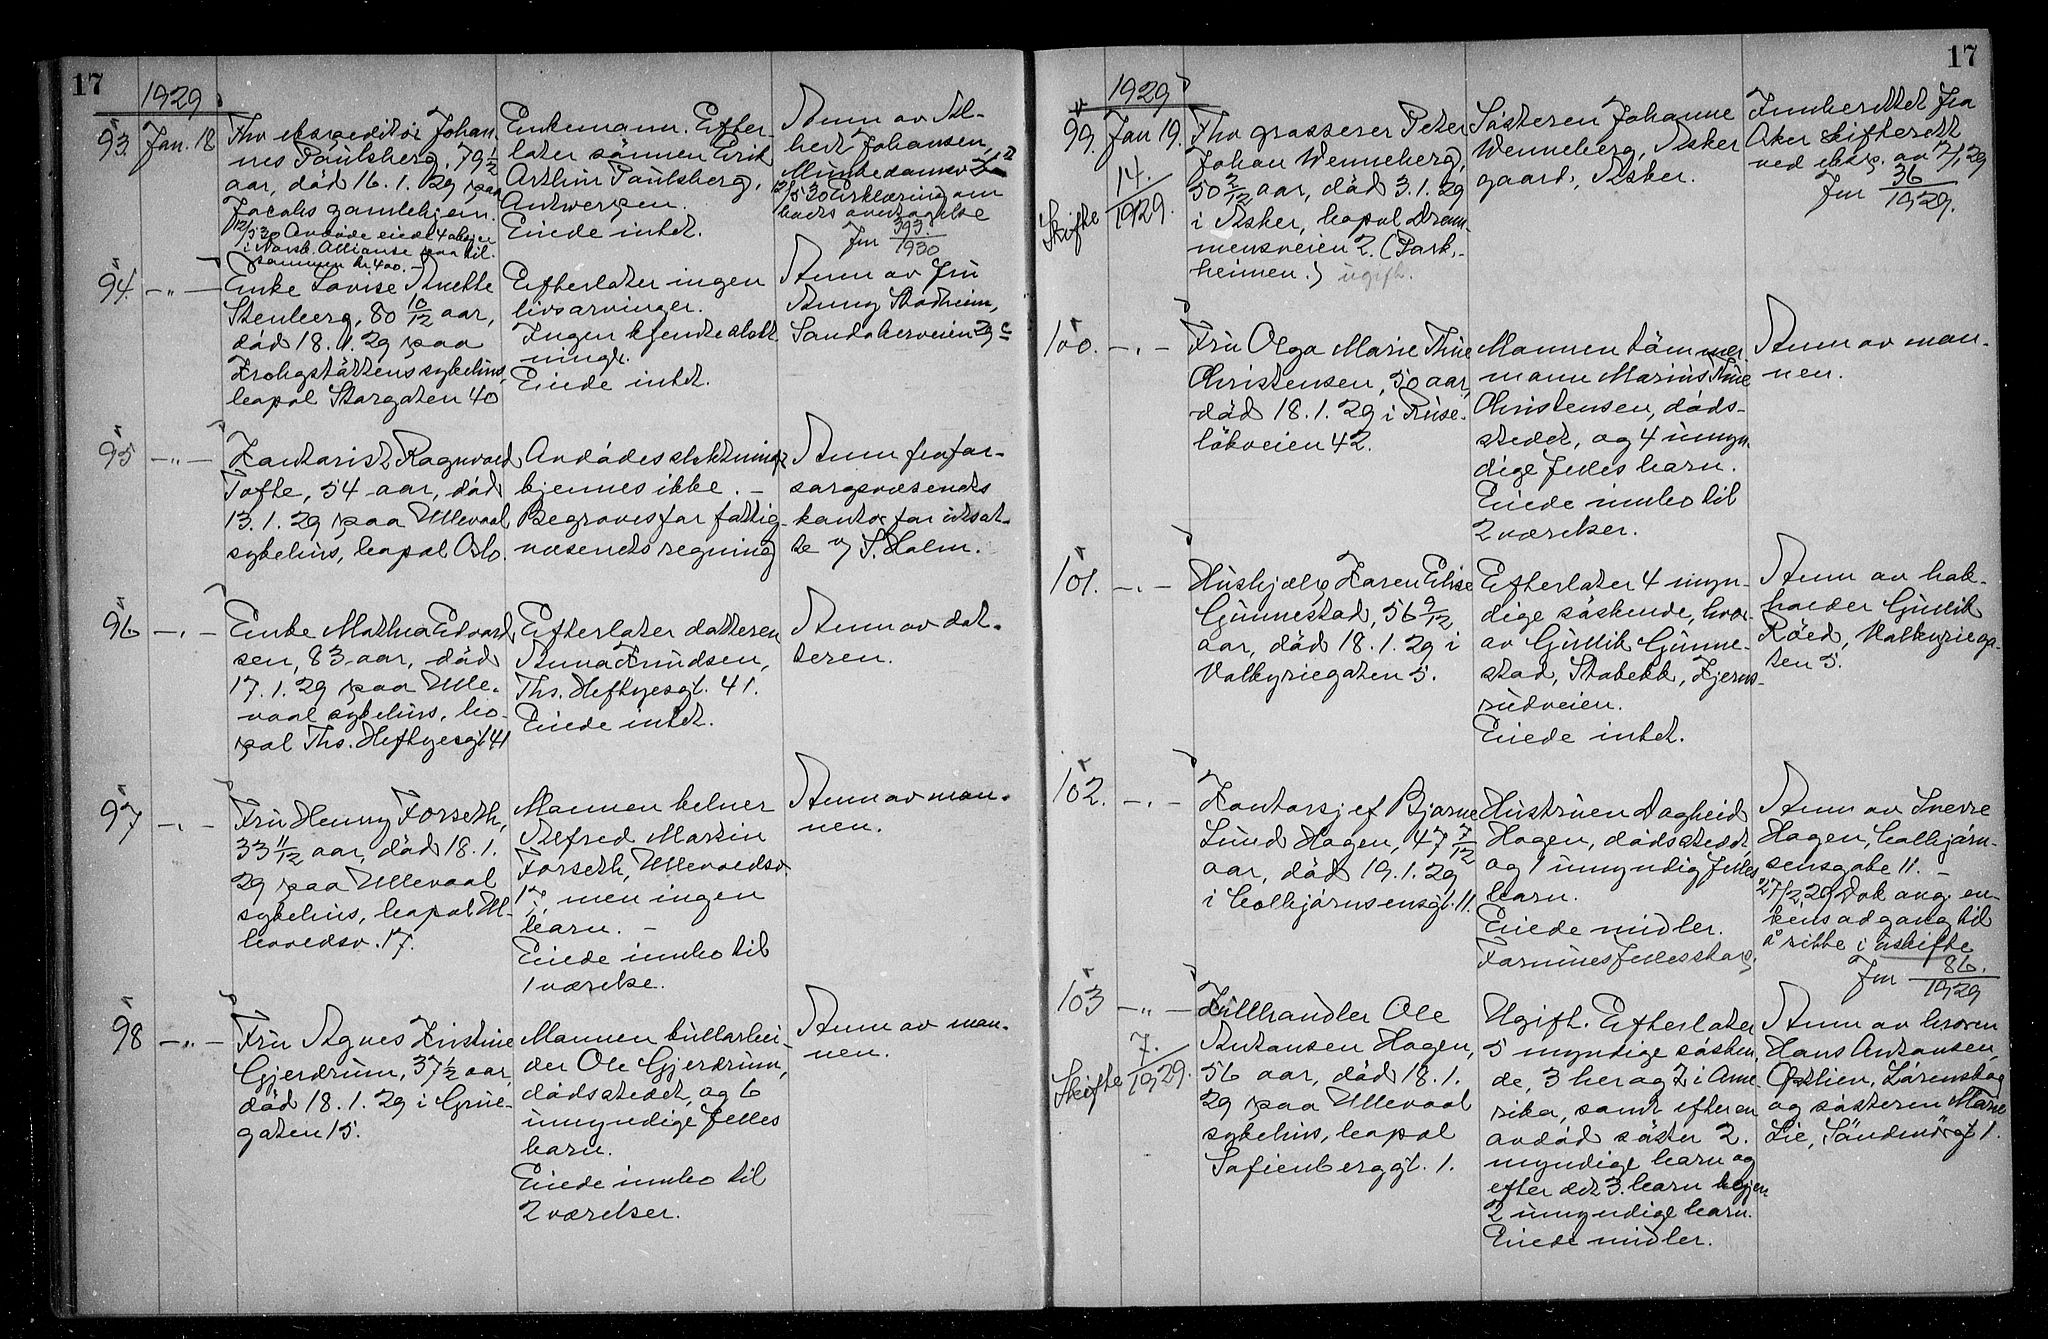 17
1929
93. Jan. 18
Fhv ekspeditör Johan-
nes Paulsberg, 79 1/2
aar, död 16. 1. 29 paa
Jacobs gamlehjem.
12/5 30 Avdöde eiede 4 aksjer
i Norsk Allianse paa til-
sammen kr 400.-
Enkemann. Efter-
later sönnen Erik
Arthur Paulsberg,
Antwerpen.
Eiede intet.
Anm av Al-
bert Johansen,
Munkedamsv
12/5 30 Erklæring om
boets overtagelse
Jnr 393/1930
94. -"-
Enke Lovise Anette
Stenberg, 80 10/12 aar,
död 18. 1. 29 paa
Krohgstöttens sykehus,
bopæl Storgaten 40
Efterlater ingen
livsarvinger.
Ingen kjente slekt-
ninger.
Eiede intet.
Anm av fru
Anny Stadheim,
Sandakerveien 29 c
95 -"-
Kontorist Ragnvald
Tofte, 54 aar, död
13. 1. 29 paa Ullevaal
sykehus, bopæl Oslo.
Avdödes slektninger
kjennes ikke. -
Begraves for fattig-
væsenets regning
Anm fra for-
sorgsvæsenets
kontor for utsat-
te v/ S. Holm.
96 -"-
Enke Mathea Edvard-
sen, 83 aar, död
17. 1. 29 paa Ulle-
vaal sykehus, bo-
pæl Ths. Heftyesgt 41
Efterlater datteren
Anna Knudsen,
Ths. Heftyesgt. 41.
Eiede intet.
Anm av dat-
teren.
97 -"-
Fru Henny Forseth,
33 11/12 aar, död 18. 1.
29 paa Ullevaal
sykehus, bopæl Ul-
levoldsv. 17.
Mannen kelner
Alfred Martin
Forseth, Ullevoldsv.
17, men ingen
barn. -
Eiede innbo til
1 værelse.
Anm av man-
nen.
98 -"-
Fru Agnes Kristine
Gjerdrum, 37 1/2 aar,
död 18. 1. 29 i Grüe-
gaten 15.
Mannen bullarbei-
der Ole Gjerdrum,
dödsstedet, og 6
umyndige felles
barn.
Eiede innbo til
2 værelser.
Anm av man-
nen.
17
1929
99. Jan 19.
Skifte 14./1929.
Fhv grosserer Peter
Johan Wenneberg,
50 3/12 aar, död 3. 1. 29
i Asker, bopæl Dram-
mensveien 2. (Park-
heimen.) ugift.
Søsteren Johanne
Wenneberg, Asker
gaard, Asker.
Innberettet fra
Aker skifterett
ved eksp. av
Jnr 36/1929.
100. -"-
Fru Olga Marie Thue
Christensen, 50 aar,
död 18. 1. 29 i Ruse-
lökveien 42.
Mannen tömmer-
mann Marius Thue
Christensen, döds-
stedet, og 4 umyn-
dige felles barn.
Eiede innbo til
2 værelser.
Anm av man-
nen.
101. -"-
Hushjelp Karen Elise
Gunnestad, 56 9/12
aar, död 18. 1. 29 i
Valkyriegaten 5.
Efterlater 4 myn-
dige söskende, hvor-
av Gullik Gunne-
stad, Stabekk, Kjerns-
rudveien.
Eiede intet.
Anm av bok-
holder Gullik
Röed, Valkyriega-
ten 5.
102. -"-
Kontorsjef Bjarne
Lund Hagen, 47 7/12
aar, död 19. 1. 29
i Colbjørnsensgt. 11.
Hustruen Dagheid
Hagen, dödsstedet
og 1 umyndig felles
barn.
Eiede midler.
Formuesfellesskap.
Anm av Sverre
Hagen, Colbjørn-
sensgate 11. -
27/2 29 Dok ang. en-
kens adgang til
å sitte i uskifte
Jnr 86./1929
103 -"-
Skifte 7./1929.
Kullhandler Ole
Antonsen Hagen,
56 aar, död 18. 1.
29 paa Ullevaal
sykehus, bopæl
Sofienberggt. 1.
Ugift. Efterlater
5 myndige sösken-
de, 3 her og 2 i Ame-
rika, samt efter en
avdöd söster 2.
myndige barn og
efter det 3. barn igjen
2 umyndige barn.
Eiede midler.
Anm av broren
Hans Antonsen,
Østlien, Lörenskog
og søsteren Marie
Lie, Söndmörsgt 1.